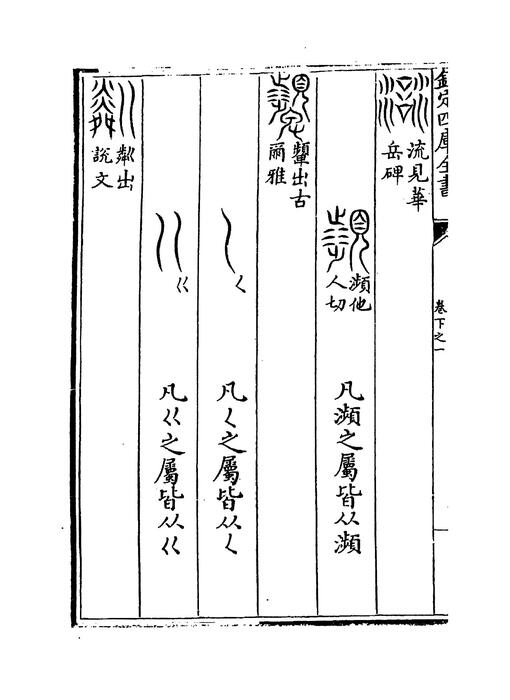 欽定四庫全書
卷下之一
流見華
岳碑
瀕他
人切
凡瀕之屬皆从瀕
顰出古
爾雅
𡿨
凡𡿨之屬皆从𡿨
巜
凡巜之屬皆从巜
粼出
說文